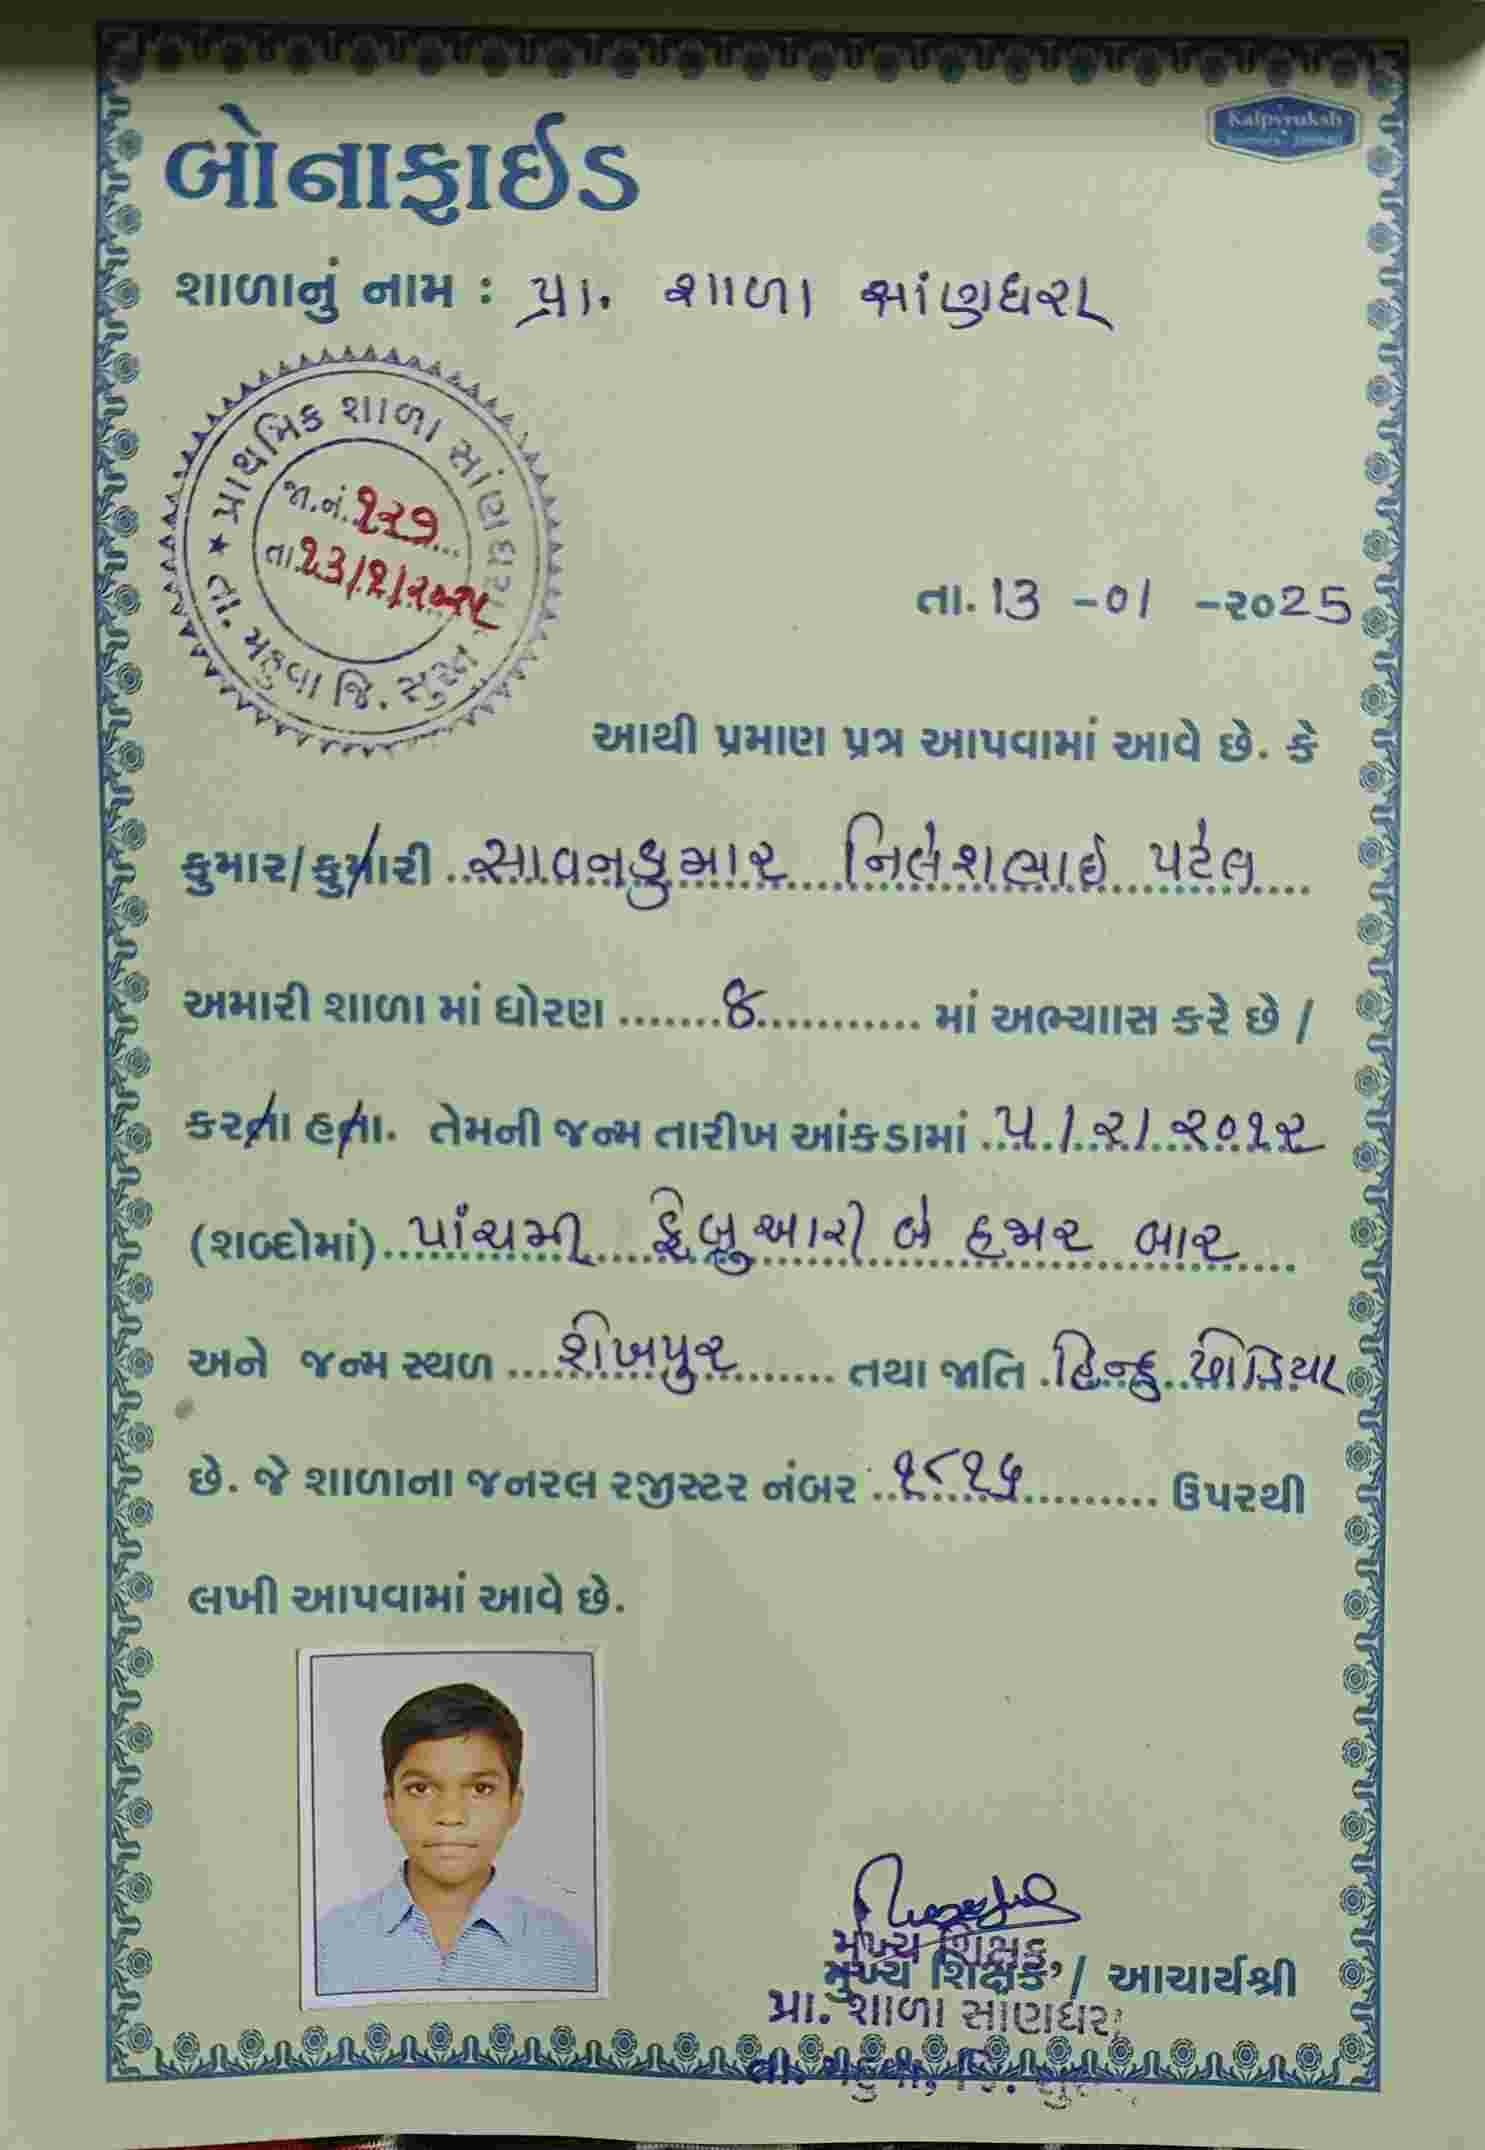 Kalpvruksh
બોનાફાઈડ
શાળાનું નામ : પ્રા. શાળા સાંણધરા
પ્રાથમિક શાળા સાંણધરા
જા.નં. ૧૨૭
તા.૧૩/૧/૨૦૨૫
★ તા. મહુવા જિ. સુરત
તા. 13 -01 -૨૦25
આથી પ્રમાણ પ્રત્ર આપવામાં આવે છે. કે
કુમાર/કુમારી સાવનકુમાર નિલેશભાઈ પટેલ
અમારી શાળા માં ધોરણ .......૪........... માં અભ્યાાસ કરે છે /
કરતા હતા. તેમની જન્મ તારીખ આંકડામાં ૫/૨/૨૦૧૨
(શબ્દોમાં) પાંચમી ફેબ્રુઆરી બે હજાર બાર
અને જન્મ સ્થળ ...શેખપુર........ તથા જાતિ .હિન્દુ ધોડિયા
છે. જે શાળાના જનરલ રજીસ્ટર નંબર ..૧૮૧૫......... ઉપરથી
લખી આપવામાં આવે છે.
મુખ્ય શિક્ષક,
મુખ્ય શિક્ષક / આચાર્યશ્રી
પ્રા. શાળા સાણધરા
તા. મહુવા, જિ. સુરત